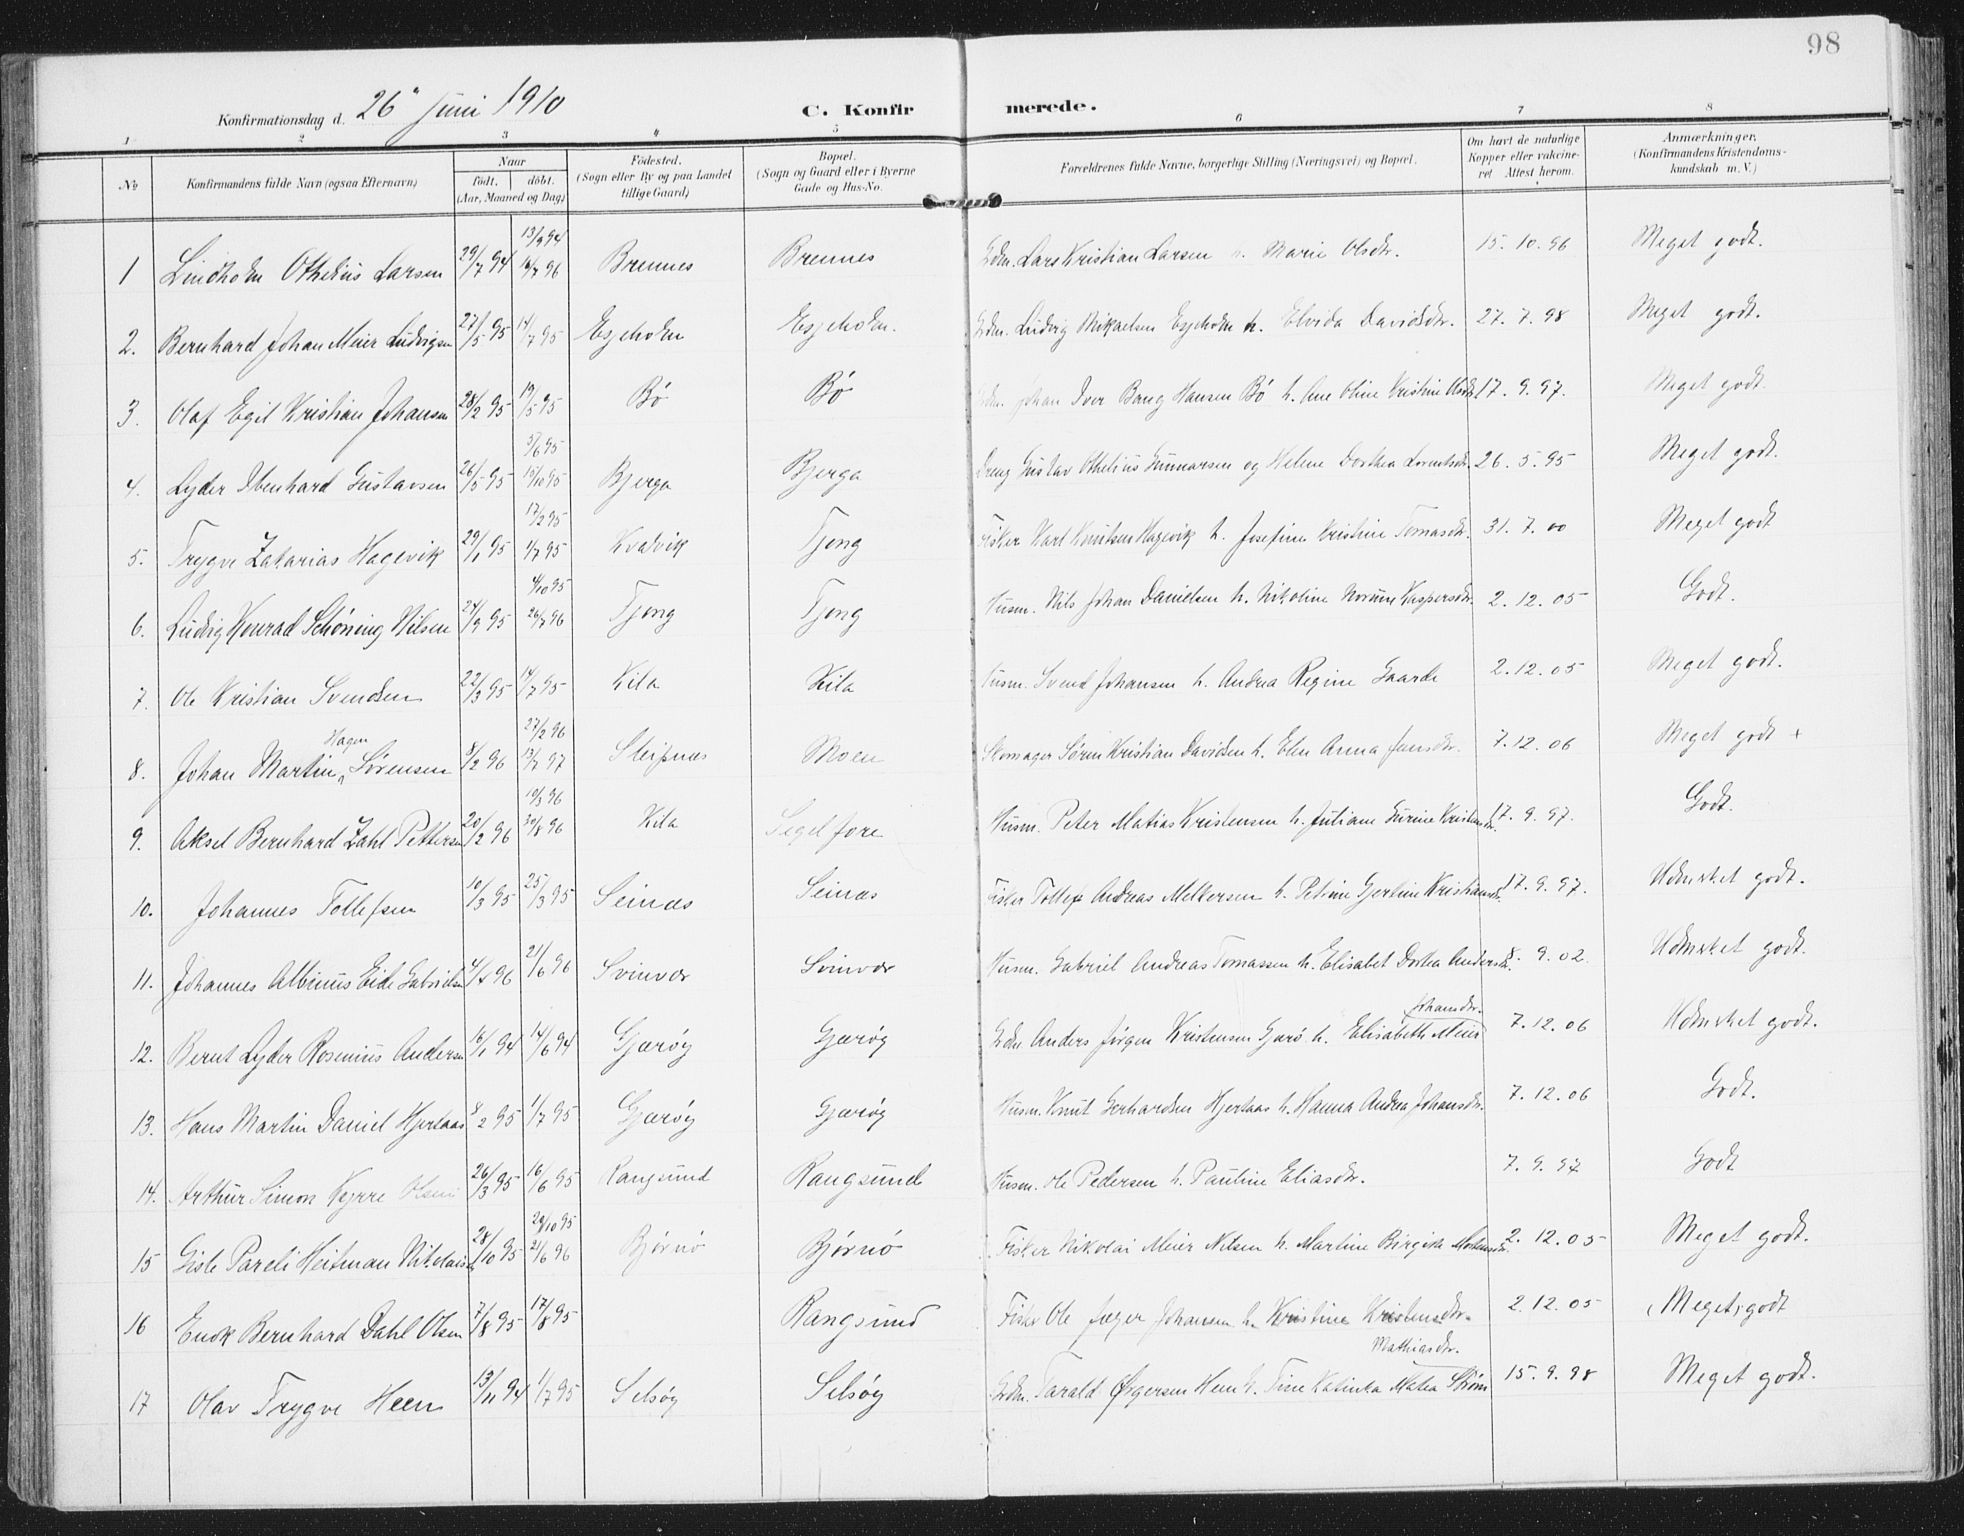 98
Konfirmationsdag d. 26" Juni 1910 C. Konfirmerede.
1 2 3 4 5 6 7 8
No Konfirmandens fulde Navn (ogsaa Efternavn) Naar Födt. döbt. (Aar, Maaned og Dag) Födested. (Sogn eller By og paa Landet tillige Gaard) Bopæl. (Sogn og Gaard eller i Byerne Gade og Hus-No. Forældrenes fulde Navne, borgerlige Stilling (Næringsvei) og Bopæl. Om havt de naturlige Kopper eller vakcineret Attest herom. Anmærkninger. (Konfirmandens Kristendomskundskab m. V.)
13/9 94
1 Lindholm Othelius Larsen 29/7 94 14/7 96 Brennes Brennes Gdm. Lars Kristian Larsen h. Marie Olsdtr. 15.10.96 Meget godt.
2. Bernhard Johan Meier Ludvigsen 27/5 95 14/7 95 Esjeholm Esjeholm. Gdm. Ludvig Mikaelsen Esjeholm h. Elvida Davidsdtr. 27.7.98 Meget godt.
3. Olaf Egil Kristian Johansen 28/2 95 19/5 95 Bö Bö Gdm. Johan Iver Bang Hansen Bö h. Ane Oline Kristine Olsdtr. 17.9.97. Meget godt.
3/6 95
4. Lyder Ibenhard Gustavsen 26/5 95 13/10 95 Bjerga Bjerga Dreng Gustav Othelius Gunnarsen og Helene Dorthea Lorentsdtr. 26.5.95 Meget godt.
17/2 95
5. Trygve Zakarias Hagevik 29/1 95 1/7 95 Kvalvik Tjong Fisker Karl Knutsen Hagevik h. Josefine Kristine Tomasdtr. 31.7.00 Meget godt
4/10 95
6. Ludvig Konrad Schöning Nilsen 24/9 95 26/7 96 Tjong Tjong Husm. Nils Johan Danielsen h. Nikoline Norum Kaspersdtr. 2.12.05 Godt.
7. Ole Kristian Svendsen 22/3 95 14/7 95 Kila Kila Husm. Svend Johansen h. Andrea Regine Gaarde 2.12.05 Meget godt.
Hagen 27/2 96
8. Johan Martin Sörensen 8/2 96 13/7 97 Sleipnæs Moen Skomager Sören Kristian Davidsen h. Elen Anna Jensdtr. 7.12.06 Meget godt +
19/3 96
9. Aksel Bernhard Zahl Pettersen 20/2 96 30/8 96 Kila Segelfore Husm. Peter Matias Kristensen h. Juliane Gurine Kristensdtr. 17.9.97. Godt.
10. Johannes Tollefsen 10/3 95 25/3 95 Seinæs Seinæs Fisker Tollef Andreas Melkersen h. Petrine Gjertine Kristiansdtr. 17.9.97. Udmerket godt.
11. Johannes Albinus Eide Gabrielsen 4/4 96 21/6 96 Svinvær Svinvær Husm. Gabriel Andreas Tomassen h. Elisabet Dortea Andersdtr. 8.9.02. Udmerket godt.
Johansdtr.
12. Bernt Lyder Rosenius Andersen 16/1 94 14/6 94 Gjæröy Gjæröy Gdm Anders Jörgen Kristensen Gjærö h. Elisabeth Meier 7.12.06 Udmerket godt.
13. Hans Martin Daniel Hjertaas 8/2 95 1/7 95 Gjæröy Gjæröy Husm. Knut Gerhardsen Hjertaas h. Hanna Andrea Johansdtr. 7.12.06 Godt.
14. Arthur Simon Kyrre Olsen 26/3 95 16/6 95 Rangsund Rangsund Husm. Ole Pedersen h. Pauline Eliasdtr. 7.9.97 Godt
29/10 95
15 Gisle Pareli Heitman Nikolaisen 28/10 95 21/6 96 Björnö Björnö Fisker Nikolai Meier Nilsen h. Martine Birgitte Mortensdtr. 2.12.05 Meget godt.
16 Enok Bernhard Dahl Olsen 7/8 95 17/8 95 Rangsund Fisker Ole Jæger Johansen h. Kristine Kristensdtr. 2.12.05 (Meget) godt
Mathiasdtr.
17 Olav Trygve Heen 13/11 94 1/7 95 Selsöy Selsöy Gdm. Tarald Örgersen Heen h. Tine Katinka Matea Ström 15.9.98 Meget godt.